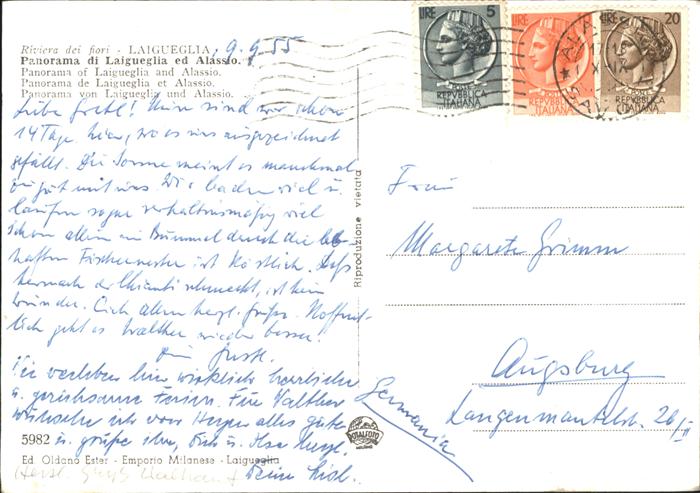 Riviera dei fiori - LAIGUEGLIA, 9.9.55
Panorama di Laigueglia ed Alassio.
Panorama of Laigueglia and Alassio.
Panorama de Laigueglia et Alassio.
Panorama von Laigueglia und Alassio.
Liebe Gretl! Nun sind wir schon
14 Tage hier, wo es uns ausgezeichnet
gefällt. Die Sonne meint es manchmal
zu gut mit uns. Wir baden viel u.
laufen sogar verhältnismäßig viel
schon allein ein Bummel durch die leb-
haften Fischernester ist köstlich. Daß
hernach der Chianti schmeckt, ist kein
Wunder. Euch allen herzl. Grüße. Hoffent-
lich geht es Walther wieder besser.
Wir verleben hier wirklich herrliche
u. geruhsame Ferien. Für Walther
wünsche ich von Herzen alles Gute
u. grüße ihn, Dich u. Ilse herzl.
Deine
5982
Ed. Oldano Ester - Emporio Milanese - Laigueglia
Riproduzione vietata
LIRE 5
POSTE
REPVBBLICA
ITALIANA
LIRE
POSTE
REPVBBLICA
ITALIANA
20
ITALIANA
Frau
Margarete Grimm
Augsburg
Langenmantelstr. 26/II
Germania